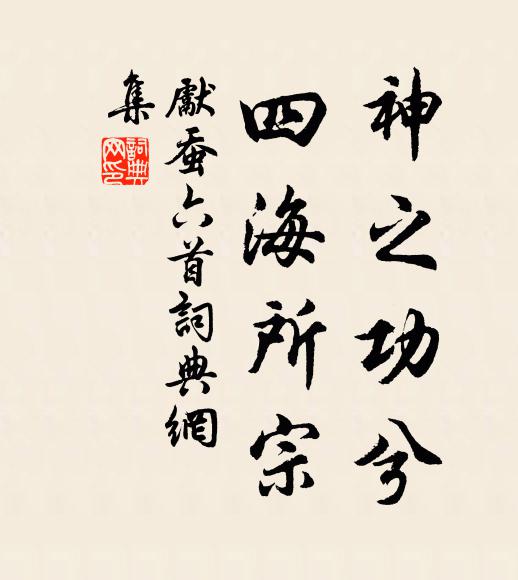 神之功兮
四海所宗
獻蚕六首詞典網
集
詞典
网印